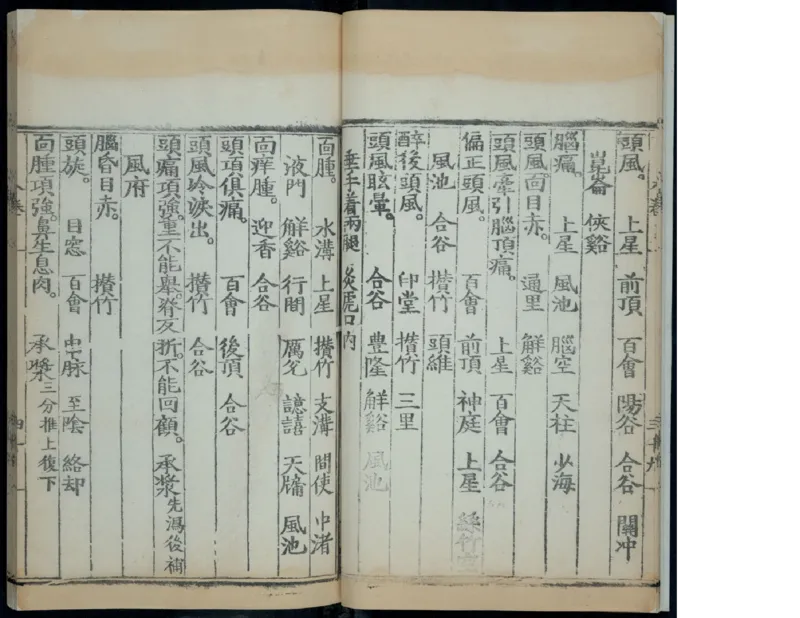 頭風。 上星 前頂 百會 陽谷 合谷 關冲
崑崙 俠谿
腦痛。 上星 風池 腦空 天柱 少海
頭風面目赤。 通里 解谿
頭風牽引腦頂痛。 上星 百會 合谷
偏正頭風。 百會 前頂 神庭 上星 絲竹空
風池 合谷 攅竹 頭維
醉後頭風。 印堂 攅竹 三里
頭風眩暈。 合谷 豊隆 解谿 風池
垂手着兩腿 灸虎口內
面腫。 水溝 上星 攅竹 支溝 間使 中渚
液門 解谿 行間 厲兌 譩譆 天牖 風池
面痒腫。 迎香 合谷
頭項俱痛。 百會 後頂 合谷
頭風冷淚出。 攅竹 合谷
頭痛項強。重不能舉。脊反折。不能回顧。承漿先瀉後補
風府
腦昏目赤。 攅竹
頭旋。 目窓 百會 申脉 至陰 絡却
面腫項強。鼻生息肉。 承漿三分推上復下